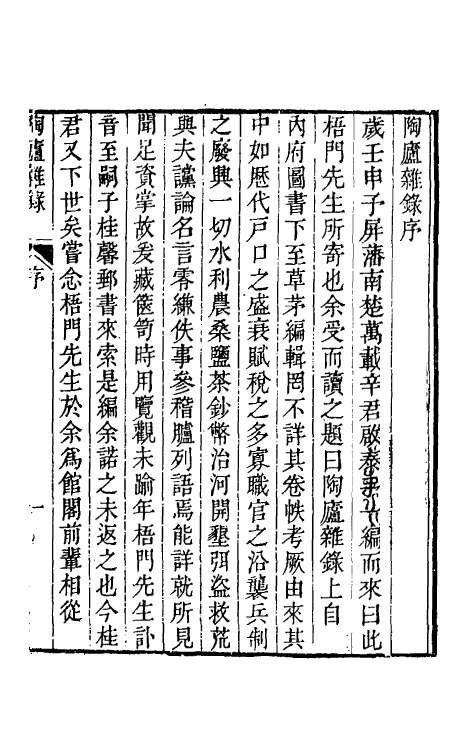 陶廬雜錄序
歲壬申予屏藩南楚萬載辛君啟泰手一編而來曰此
梧門先生所寄也余受而讀之題曰陶廬雜錄上自
內府圖書下至草茅編輯罔不詳其卷帙考厥由來其
中如歷代戸口之盛衰賦稅之多寡職官之沿襲兵制
之廢興一切水利農桑鹽茶鈔幣治河開墾弭盜救荒
與夫讜論名言零縑佚事參稽臚列語焉能詳就所見
聞足資掌故爰藏篋笥時用覽觀未踰年梧門先生訃
音至嗣子桂馨郵書來索是編余諾之未返之也今桂
君又下世矣嘗念梧門先生於余爲館閣前輩相從
陶廬雜錄
序
一